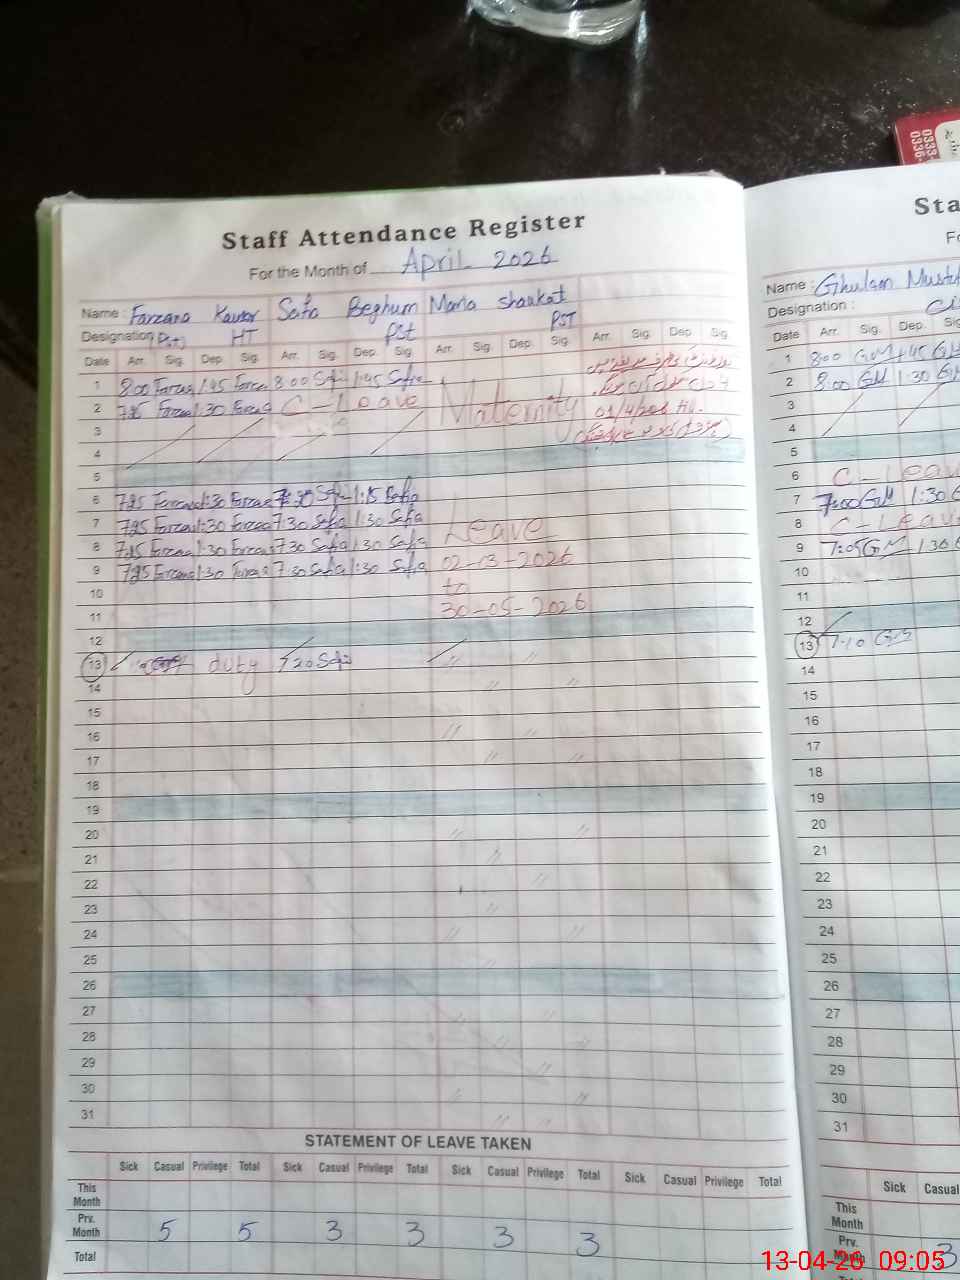 Staff Attendance Register
For the Month of April 2026
Name : Farzana Kausar Safia Beghum Maria Shaukat
Designation HT PSt PST
Date Arr. Sig. Dep. Sig. Arr. Sig. Dep. Sig. Arr. Sig. Dep. Sig. Arr. Sig. Dep. Sig.
1 8:00 Farzan 1:45 Farzan 8:00 Safi 1:45 Safia
2 7:25 Farzan 1:30 Farzan C - Leave Maternity
3
4
5
6 7:25 Farzana 1:30 Farzan 7:30 Safi 1:15 Safia
7 7:25 Farzan 1:30 Farzan 7:30 Safia 1:30 Safia Leave
8 7:25 Farzan 1:30 Farzan 7:30 Safia 1:30 Safia
9 7:25 Farzana 1:30 Farzan 7:30 Safia 1:30 Safia 02-03-2026
10 to
11 30-05-2026
12
13 duty 7:20 Safi
14
15
16
17
18
19
20
21
22
23
24
25
26
27
28
29
30
31
STATEMENT OF LEAVE TAKEN
Sick Casual Privilege Total Sick Casual Privilege Total Sick Casual Privilege Total Sick Casual Privilege Total
This Month
Prv. Month 5 5 3 3 3 3
Total
Sta
Name : Ghulam Mustuf
Designation : Ci
Date Arr. Sig. Dep. Sig
1 8:00 GM 1:45 GM
2 8:00 GM 1:30 G
3
4
5
6 C - Leav
7 7:00 GM 1:30 G
8 C - Leav
9 7:05 GM 1:30 G
10
11
12
13 7:10 GM
14
15
16
17
18
19
20
21
22
23
24
25
26
27
28
29
30
31
Sick Casual
This Month
Prv. Month 3
13-04-26 09:05